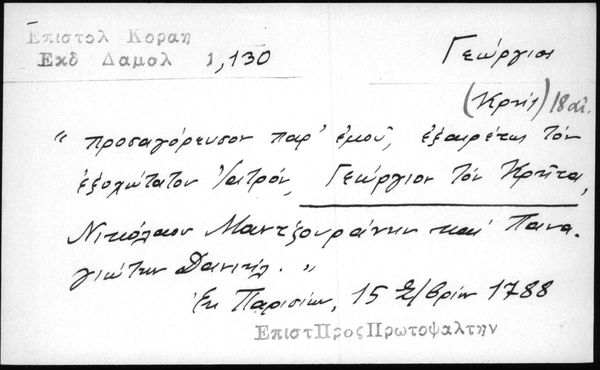 Επιστολ Κοραη
Εκδ Δαμαλ 1,130
Γεώργιος
(Κρής) 18 αἰ.
" προσαγόρευσον παρ' ἐμοῦ, ἐξαιρέτως τὸν
ἐξοχώτατον Ἰατρόν, Γεώργιον τὸν Κρῆτα,
Νικόλαον Μαντζουράνην καὶ Πανα-
γιώτην Δανιήλ. "
Ἐκ Παρισίων, 15 7/βρίου 1788
ΕπιστΠροςΠρωτοψαλτην